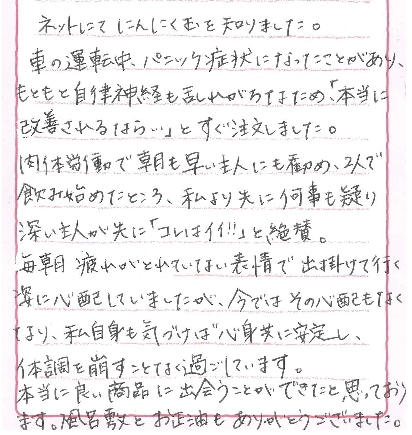 ネットにて にんにくむを知りました。
車の運転中、パニック症状になったことがあり、
もともと自律神経も乱れがちなため、「本当に
改善されるなら…」とすぐ注文しました。
肉体労働で朝も早い主人にも勧め、2人で
飲み始めたところ、私より先に何事も疑り
深い主人が先に「コレはイイ!!」と絶賛。
毎朝 疲れがとれていない表情で出掛けて行く
姿に心配していましたが、今ではその心配もなく
なり、私自身も気づけば心身共に安定し、
体調を崩すことなく過ごしています。
本当に良い商品に出会うことができたと思っており
ます。風呂敷と お正油も ありがとうございました。